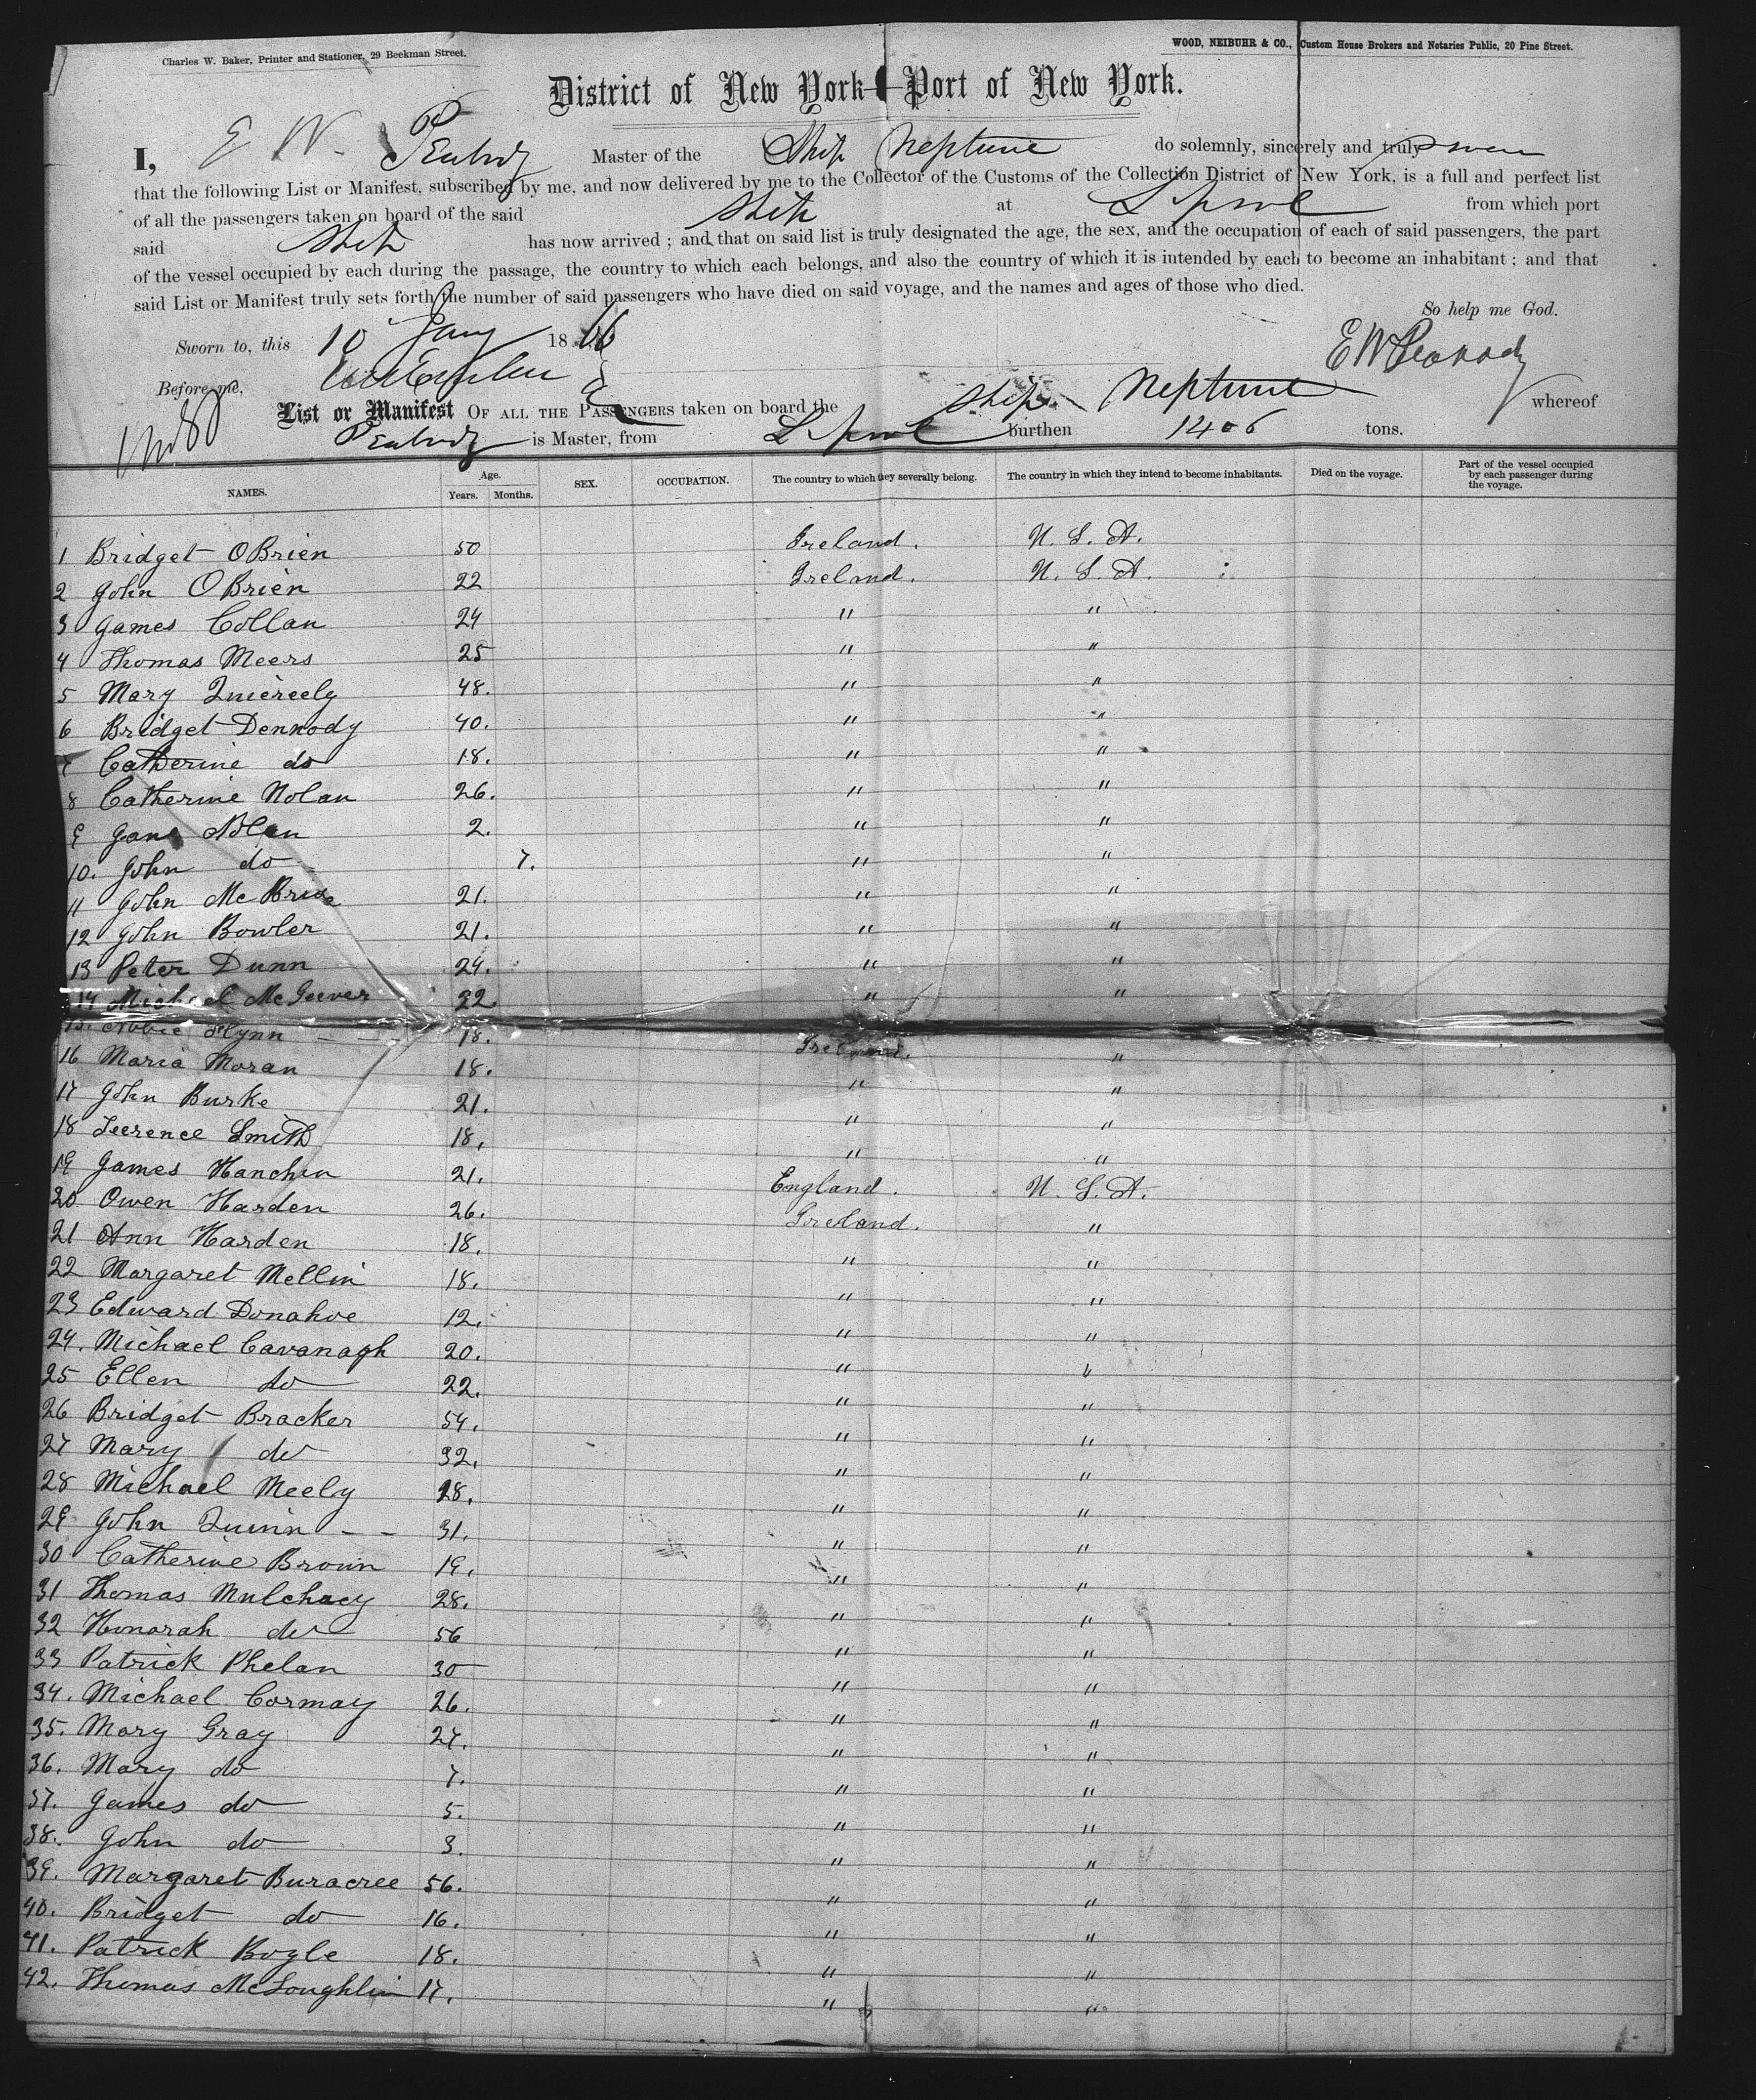 Charles W. Baker, Printer and Stationer, 29 Beekman Street.
WOOD, NEIBUHR & CO., Custom House Brokers and Notaries Public, 20 Pine Street.
District of New York—Port of New York.
I, E W. Peabody Master of the Ship Neptune do solemnly, sincerely and truly swear
that the following List or Manifest, subscribed by me, and now delivered by me to the Collector of the Customs of the Collection District of New York, is a full and perfect list
of all the passengers taken on board of the said Ship at L'pool from which port
said Ship has now arrived; and that on said list is truly designated the age, the sex, and the occupation of each of said passengers, the part
of the vessel occupied by each during the passage, the country to which each belongs, and also the country of which it is intended by each to become an inhabitant; and that
said List or Manifest truly sets forth the number of said passengers who have died on said voyage, and the names and ages of those who died.
So help me God.
Sworn to, this 10 Jany 1866 EW Peabody
Before me,
List or Manifest OF ALL THE PASSENGERS taken on board the Ship Neptune whereof
Peabody is Master, from L'pool burthen 1406 tons.
NAMES. Age. Years. Months. SEX. OCCUPATION. The country to which they severally belong. The country in which they intend to become inhabitants. Died on the voyage. Part of the vessel occupied by each passenger during the voyage.
1 Bridget OBrien 50 Ireland. U. S. A.
2 John OBrien 22 Ireland. U. S. A.
3 James Collan 24 " "
4 Thomas Meers 25 " "
5 Mary Quiereely 48. " "
6 Bridget Dennody 40. " "
7 Catherine do 18. " "
8 Catherine Nolan 26. " "
9 Jane Nolan 2. " "
10. John do 7. " "
11 John McBride 21. " "
12 John Bowler 21. " "
13 Peter Dunn 24. " "
14 Michael McGeever 22 " "
15. Abbie Flynn 18. Ireland. "
16 Maria Moran 18. " "
17 John Burke 21. " "
18 Terence Smith 18. " "
19 James Hanchin 21. England. U. S. A.
20 Owen Harden 26. Ireland. "
21 Ann Harden 18. " "
22 Margaret Mellin 18. " "
23 Edward Donahoe 12. " "
24. Michael Cavanagh 20. " "
25 Ellen do 22. " "
26 Bridget Bracker 54. " "
27 Mary do 32. " "
28 Michael Meely 28. " "
29 John Quinn 31. " "
30 Catherine Brown 19. " "
31 Thomas Mulchacy 28. " "
32 Honorah do 56 " "
33 Patrick Phelan 30 " "
34. Michael Cormay 26. " "
35. Mary Gray 27. " "
36. Mary do 7. " "
37. James do 5. " "
38. John do 3. " "
39. Margaret Buracree 56. " "
40. Bridget do 16. " "
41. Patrick Bogle 18. " "
42. Thomas McLoughlin 17. " "